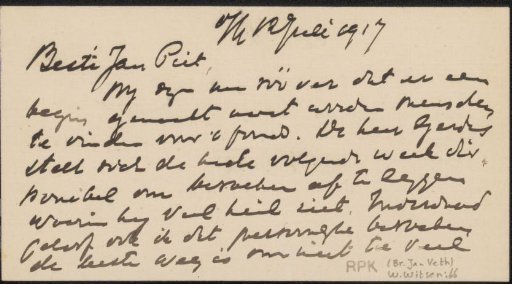 12 Juli 1917
Beste Jan Piet,
Wy zyn nu zoover dat er een
begin gemaakt moet worden menschen
te vinden voor 't fonds. De heer Gerdes
stelt zich de heele volgende week dis-
ponibel om bezoeken af te leggen
waarin hy veel heil ziet. Inderdaad
geloof ook ik dat persoonlyke bezoeken
de beste weg is om niet te veel
RPK (Br. Jan Veth)
W. Witsen: 66